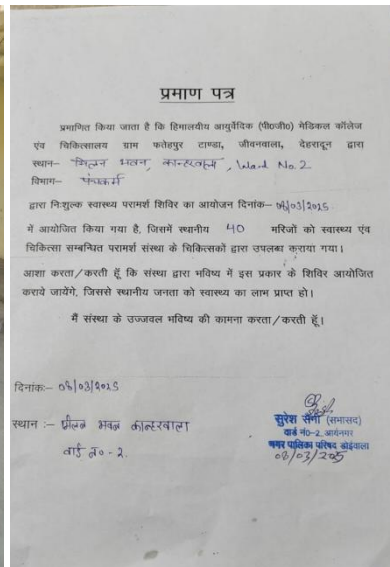 प्रमाण पत्र
प्रमाणित किया जाता है कि हिमालयीय आयुर्वेदिक (पी०जी०) मेडिकल कॉलेज
एंव चिकित्सालय ग्राम फतेहपुर टाण्डा, जीवनवाला, देहरादून द्वारा
स्थान– मिलन भवन, कान्हरवाला, Ward No. 2
विभाग– पंचकर्म
द्वारा निःशुल्क स्वास्थ्य परामर्श शिविर का आयोजन दिनांक– 08/03/2025
में आयोजित किया गया है, जिसमें स्थानीय 40 मरिजों को स्वास्थ्य एंव
चिकित्सा सम्बन्धित परामर्श संस्था के चिकित्सकों द्वारा उपलब्ध कराया गया।
आशा करता/करती हूँ कि संस्था द्वारा भविष्य में इस प्रकार के शिविर आयोजित
कराये जायेंगे, जिससे स्थानीय जनता को स्वास्थ्य का लाभ प्राप्त हो।
मैं संस्था के उज्जवल भविष्य की कामना करता/करती हूँ।
दिनांकः– 08/03/2025
स्थान :– मीलन भवन कान्हरवाला
वार्ड न० - 2.
सुरेश सैनी (सभासद)
वार्ड नं0-2, आर्यनगर
नगर पालिका परिषद डोईवाला
08/03/2025